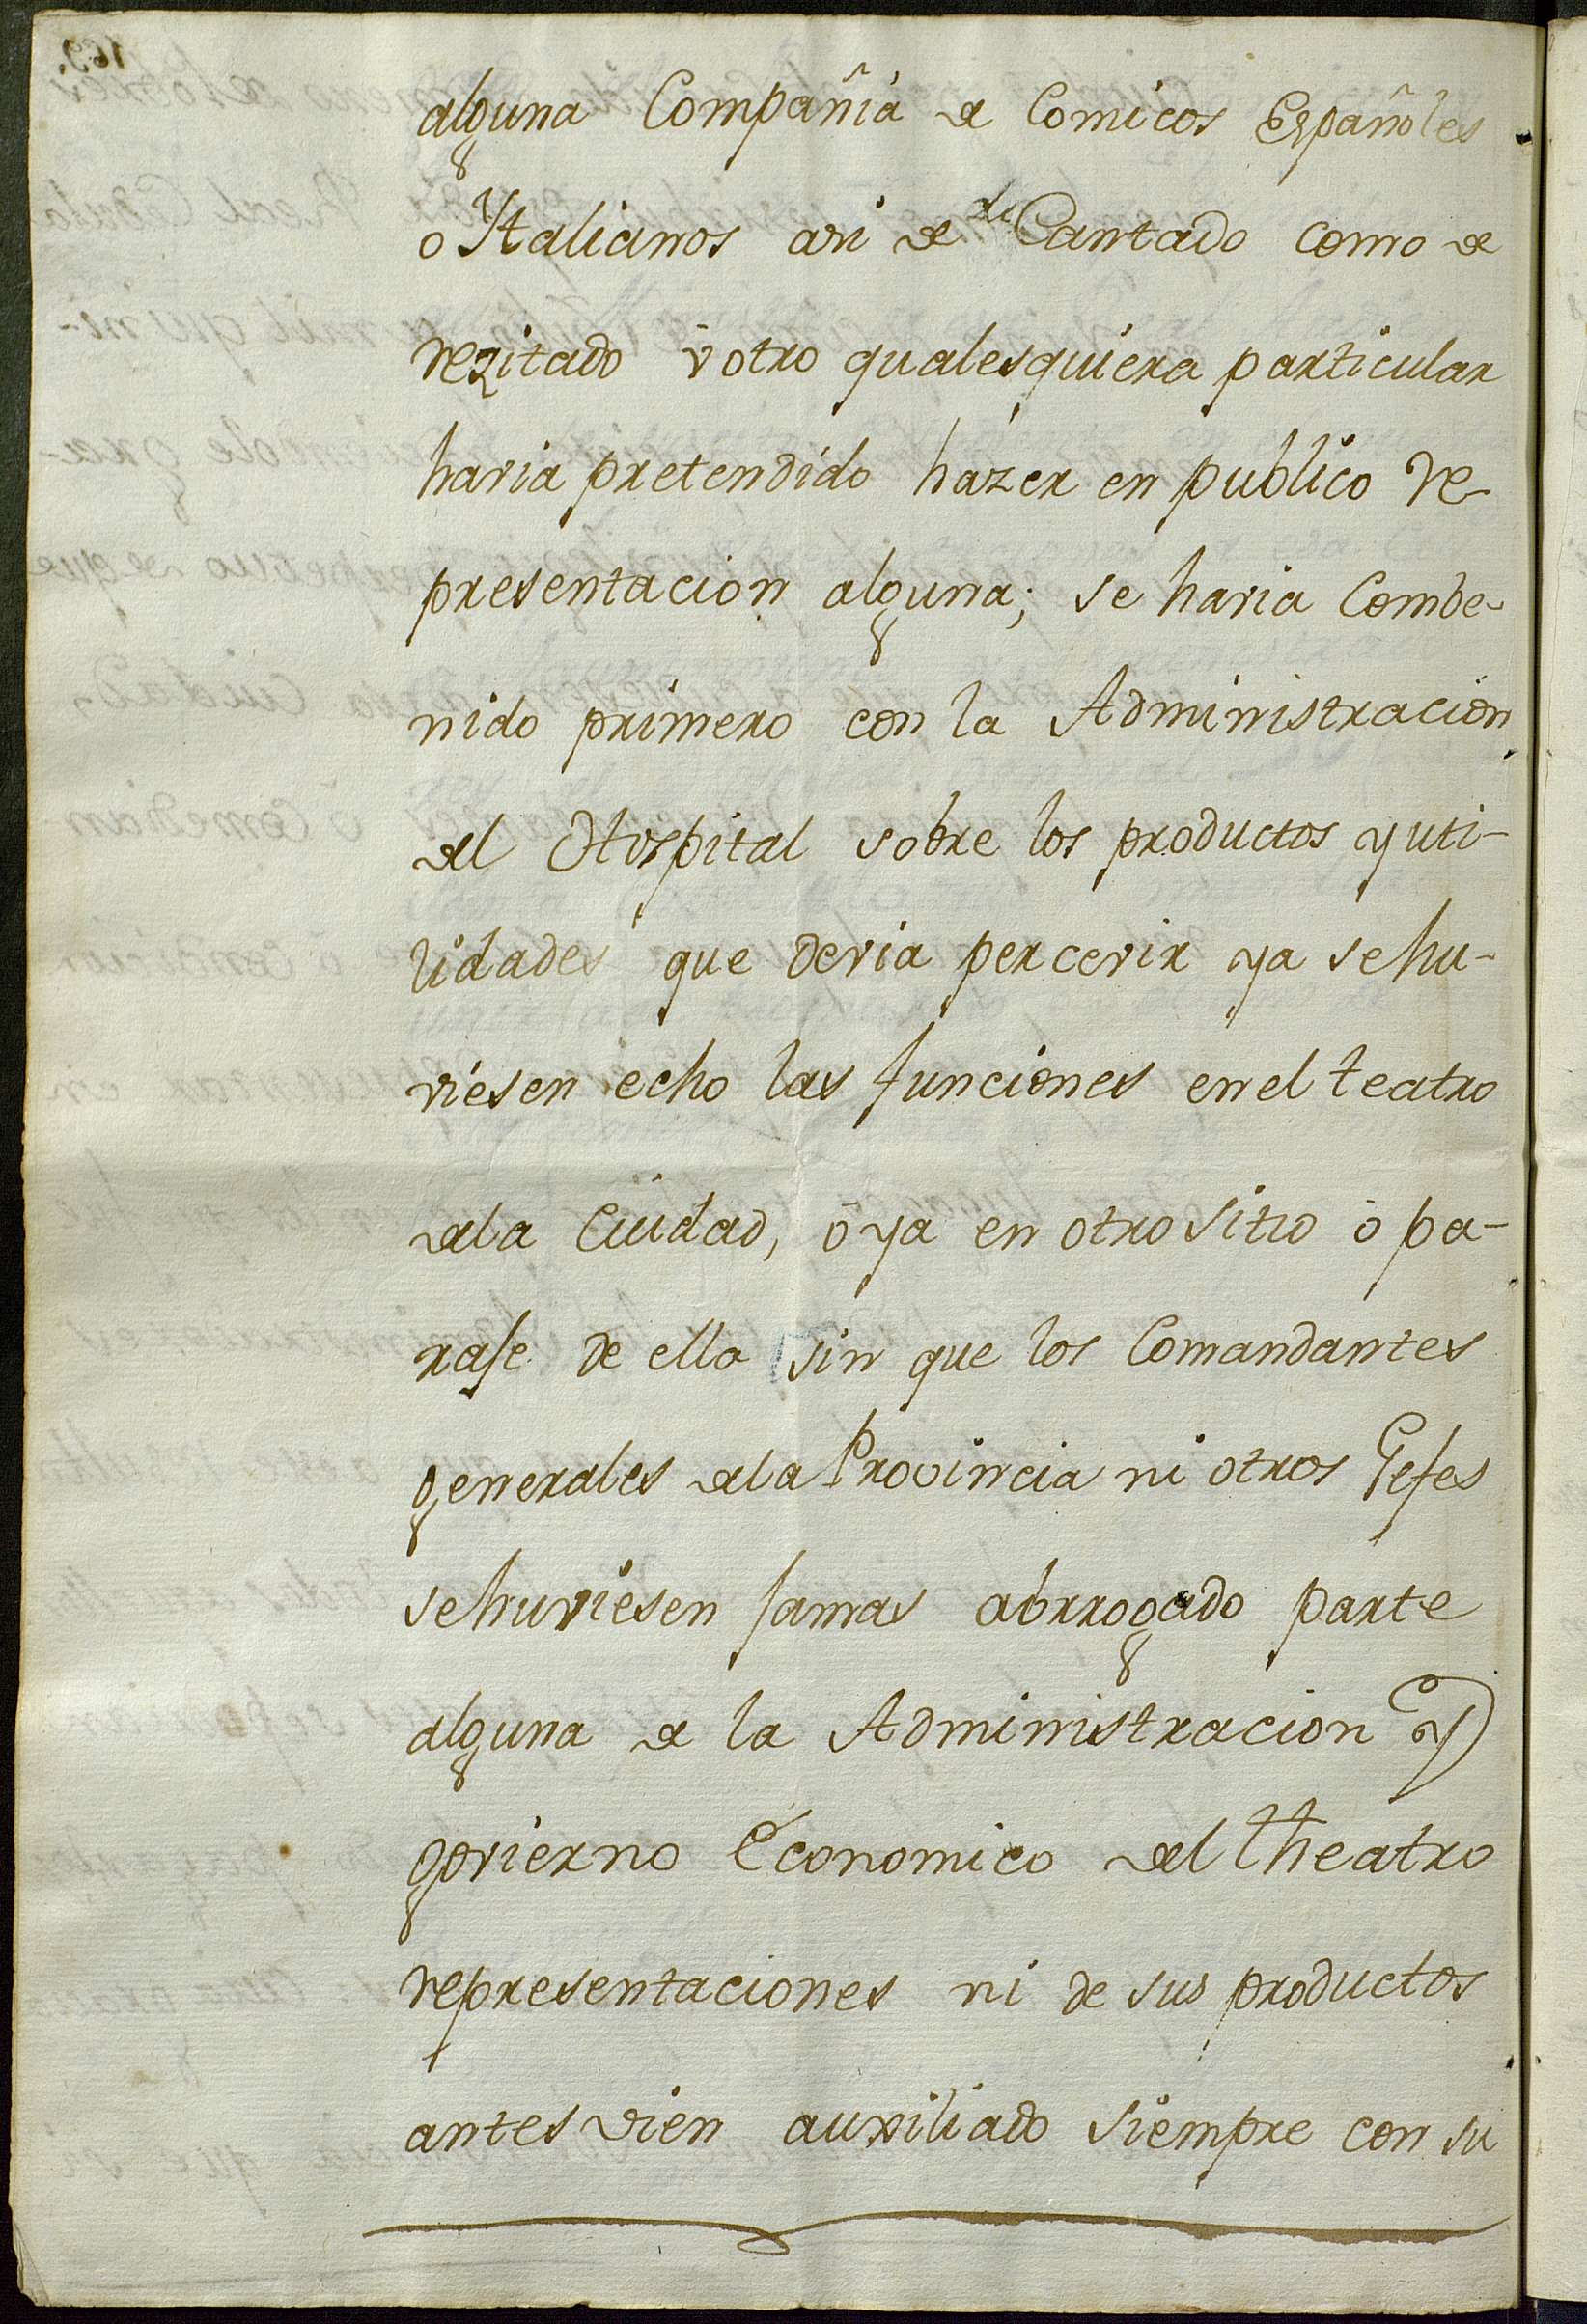 alguna Compañia de Comicos Españoles
o Ytalianos asi de de Cantado como de
rezitado ù otro qualesquiera particular
havia pretendido hazer en publico re-
presentacion alguna; se havia Combe-
nido primero con la Administracion
del Hospital sobre los productos y uti-
lidades que devia percevir ya sehu-
viesen echo las funciones en el teatro
dela Ciudad, ò ya en otro sitio ò pa-
rase de ella sin que los Comandantes
generales dela Provincia ni otros Gefes
sehuviesen jamas abrrogado parte
alguna de la Administracion y
govierno Economico del theatro
representaciones ni de sus productos
antes vien auxiliado siempre con su